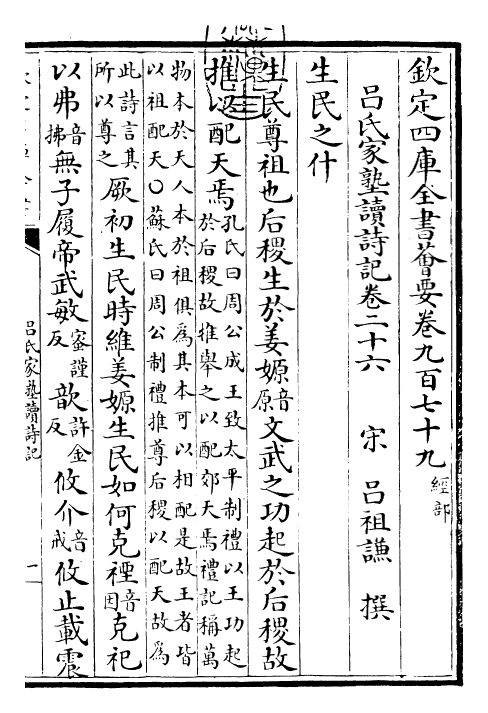 欽定四庫全書薈要卷九百七十九 經部
呂氏家塾讀詩記卷二十六 宋 呂祖謙 撰
生民之什
生民尊祖也后稷生於姜嫄音原文武之功起於后稷故
推以配天焉孔氏曰周公成王致太平制禮以王功起
於后稷故推舉之以配郊天焉禮記稱萬
物本於天人本於祖俱爲其本可以相配是故王者皆
以祖配天○蘇氏曰周公制禮推尊后稷以配天故爲
此詩言其
所以尊之厥初生民時維姜嫄生民如何克禋音因克祀
以弗音拂無子履帝武敏密謹反歆許金反攸介音戒攸止載震
呂氏家塾讀詩記
一